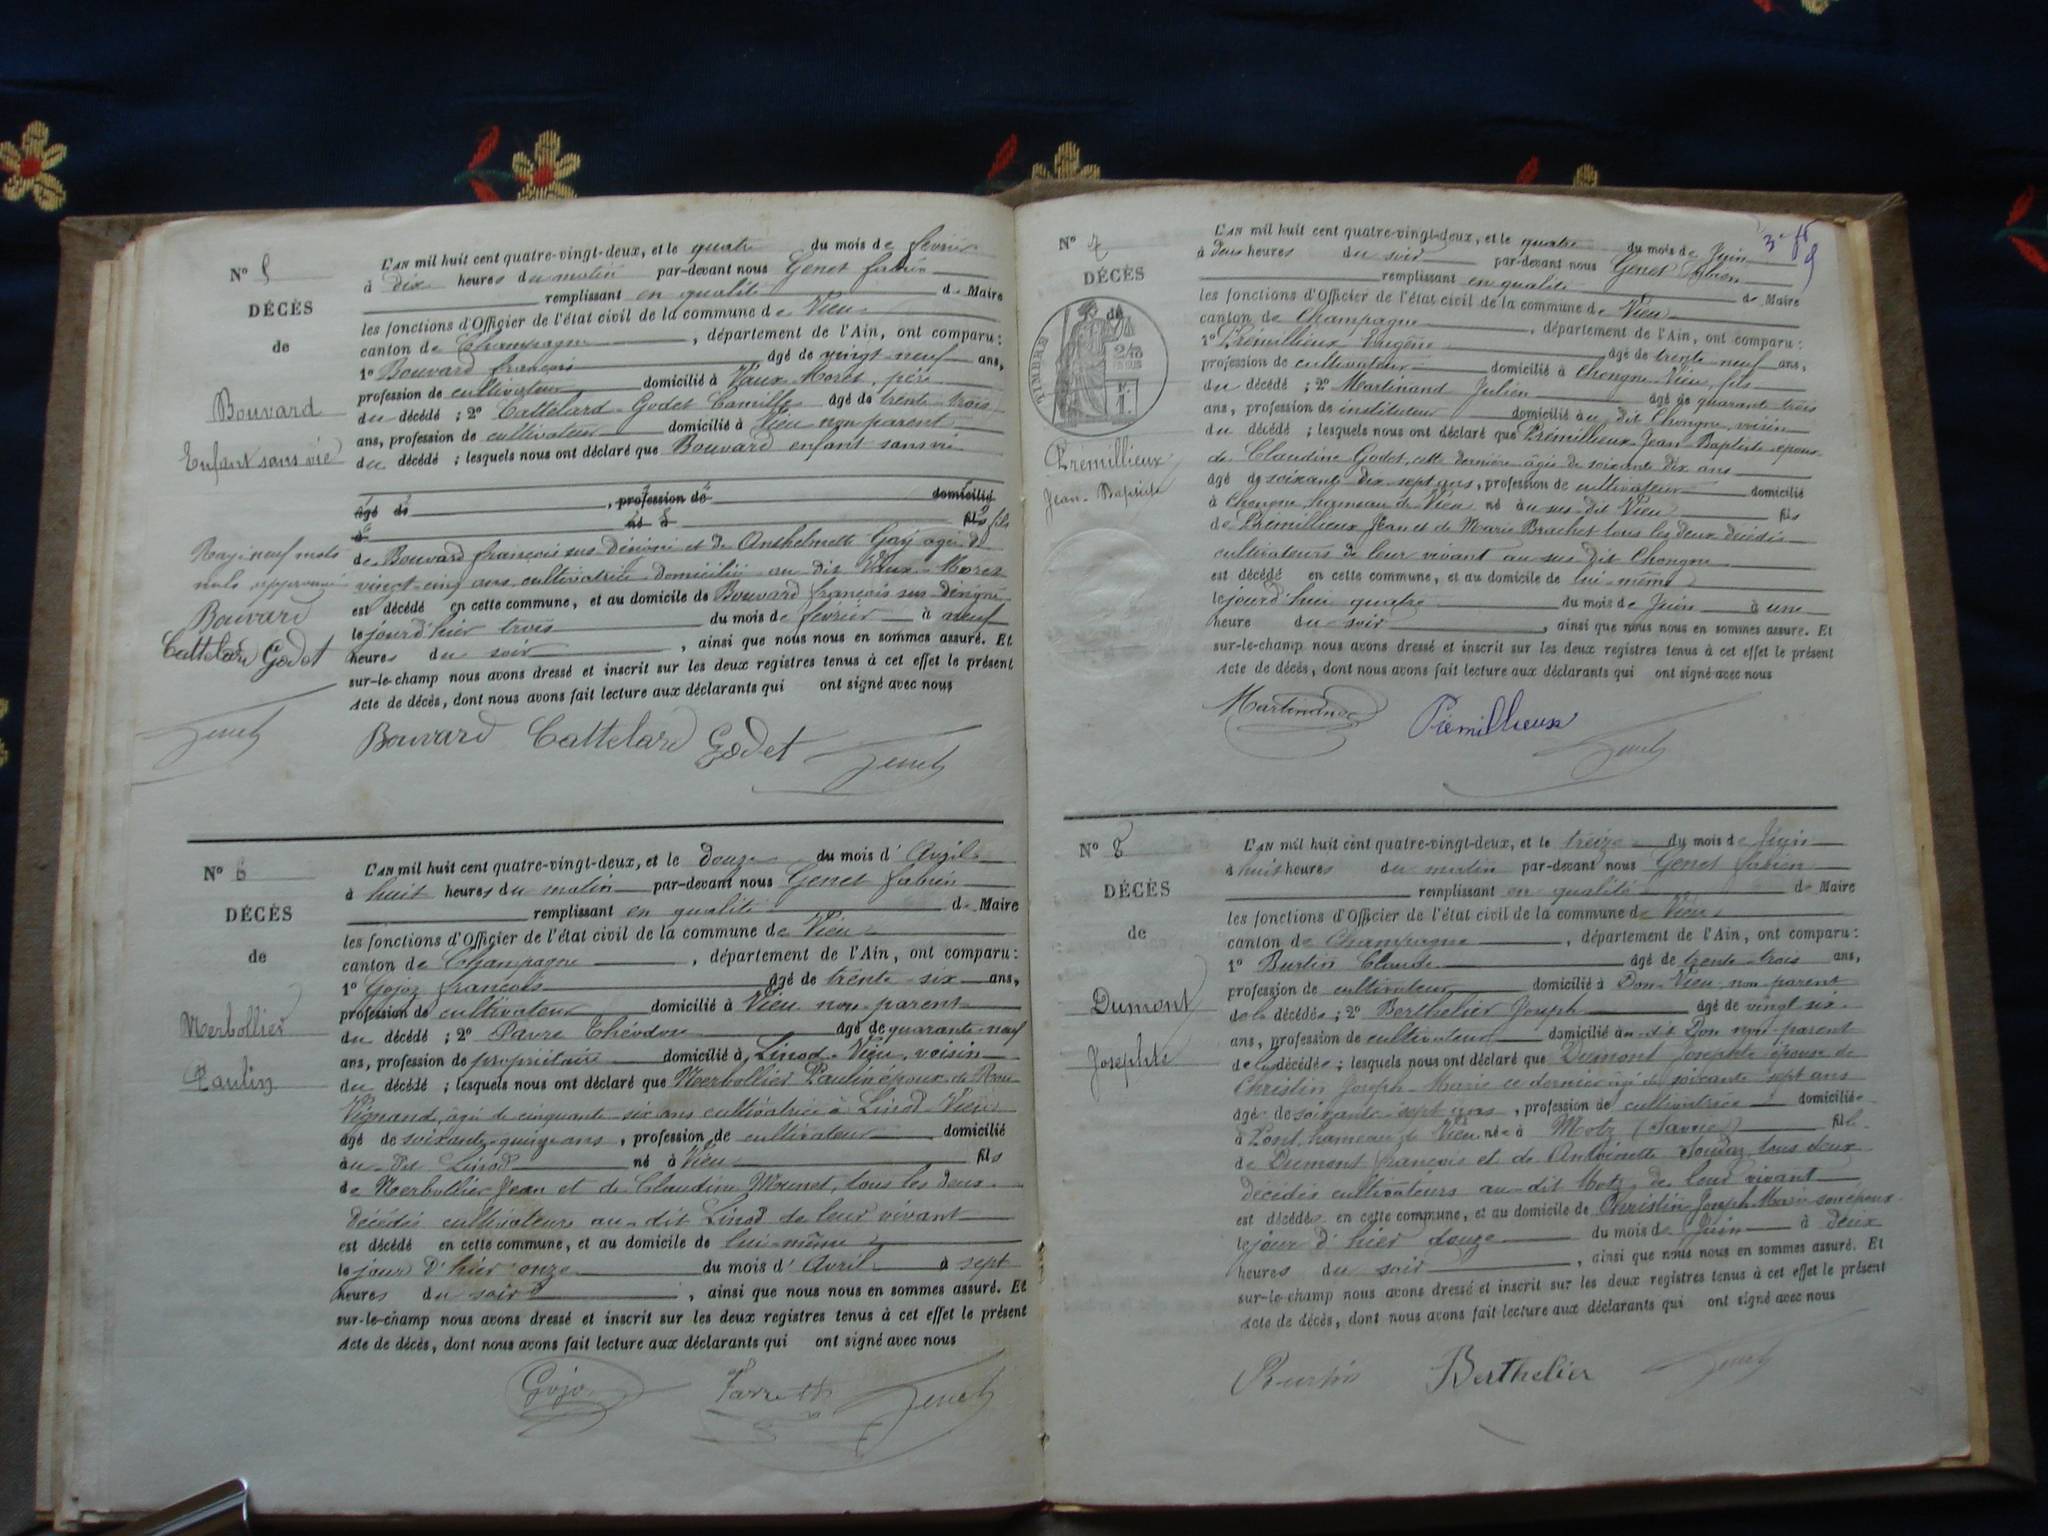 N° 5
DÉCÈS
de
Bouvard
Enfant sans vie
Rayé neuf mots
nuls approuvé
Bouvard
Cattelard Godet
Genet
L'AN mil huit cent quatre-vingt-deux, et le quatre du mois de février
à dix heures du matin par-devant nous Genet fabien
remplissant en qualité de Maire
les fonctions d'Officier de l'état civil de la commune de Vieu
canton de Champagne, département de l'Ain, ont comparu:
1° Bouvard françois âgé de vingt-neuf ans,
profession de cultivateur domicilié à Vaux-Morets, père
du décédé ; 2° Cattelard-Godet Camille âgé de trente-trois
ans, profession de cultivateur domicilié à Vieu non parent
du décédé ; lesquels nous ont déclaré que Bouvard enfant sans vie
âgé de , profession de domicilié
à né à fils fils
de Bouvard françois sus désigné et de Anthelmette Gay âgée de
vingt-cinq ans cultivatrice domiciliée au dit Vaux-Morez
est décédé en cette commune, et au domicile de Bouvard françois sus désigné
le jour d'hier trois du mois de février à neuf
heures du soir , ainsi que nous nous en sommes assuré. Et
sur-le-champ nous avons dressé et inscrit sur les deux registres tenus à cet effet le présent
Acte de décès, dont nous avons fait lecture aux déclarants qui ont signé avec nous
Bouvard Cattelard Godet Genet
N° 6
DÉCÈS
de
Merbollier
Paulin
L'AN mil huit cent quatre-vingt-deux, et le douze du mois d'Avril
à huit heures du matin par-devant nous Genet fabien
remplissant en qualité de Maire
les fonctions d'Officier de l'état civil de la commune de Vieu
canton de Champagne , département de l'Ain, ont comparu:
1° Gojoz françois âgé de trente-six ans,
profession de cultivateur domicilié à Vieu non-parent
du décédé ; 2° Favre Théodore âgé de quarante-neuf
ans, profession de propriétaire domicilié à Linod-Vieu, voisin
du décédé ; lesquels nous ont déclaré que Merbollier Paulin époux de
Vignand, âgée de cinquante-six ans cultivatrice à Linod-Vieu
âgé de soixante-quinze ans , profession de cultivateur domicilié
au-dit Linod né à Vieu fils
de Merbollier Jean et de Claudine Monnet, tous les deux
décédés cultivateurs au-dit Linod de leur vivant
est décédé en cette commune, et au domicile de lui-même
le jour d'hier onze du mois d'Avril à sept
heures du soir , ainsi que nous nous en sommes assuré. Et
sur-le-champ nous avons dressé et inscrit sur les deux registres tenus à cet effet le présent
Acte de décès, dont nous avons fait lecture aux déclarants qui ont signé avec nous
Gojoz Favre Th Genet
3e
N° 7
DÉCÈS
de
TIMBRE
2/10
EN SUS
1F.
Prémillieux
Jean-Baptiste
L'AN mil huit cent quatre-vingt-deux, et le quatre du mois de Juin
à deux heures du soir par-devant nous Genet fabien
remplissant en qualité de Maire
les fonctions d'Officier de l'état civil de la commune de Vieu
canton de Champagne , département de l'Ain, ont comparu:
1° Prémillieux Eugène âgé de trente-neuf ans,
profession de cultivateur domicilié à Chongne-Vieu, fils
du décédé ; 2° Martinand Julien âgé de quarante-trois
ans, profession de instituteur domicilié au dit Chongne, voisin
du décédé ; lesquels nous ont déclaré que Prémillieux Jean-Baptiste époux
de Claudine Godet, cette dernière âgée de soixante dix ans
âgé de soixante dix-sept ans, profession de cultivateur domicilié
à Chongne, hameau de Vieu né au sus-dit Vieu fils
de Prémillieux Jean et de Marie Brachet tous les deux décédés
cultivateurs de leur vivant au sus-dit Chongne
est décédé en cette commune, et au domicile de lui-même
le jourd'hui quatre du mois de Juin à une
heure du soir , ainsi que nous nous en sommes assuré. Et
sur-le-champ nous avons dressé et inscrit sur les deux registres tenus à cet effet le présent
Acte de décès, dont nous avons fait lecture aux déclarants qui ont signé avec nous
Martinand Prémillieux Genet
N° 8
DÉCÈS
de
Dumont
Josephte
L'AN mil huit cent quatre-vingt-deux, et le treize du mois de Juin
à huit heures du matin par-devant nous Genet fabien
remplissant en qualité de Maire
les fonctions d'Officier de l'état civil de la commune de Vieu
canton de Champagne , département de l'Ain, ont comparu:
1° Burtin Claude âgé de trente-trois ans,
profession de cultivateur domicilié à Don-Vieu non parent
de la décédée ; 2° Berthelier Joseph âgé de vingt-six
ans, profession de cultivateur domicilié au-dit Don non-parent
de la décédée ; lesquels nous ont déclaré que Dumont Josephte épouse de
Christin Joseph-Marie ce dernier âgé de soixante-sept ans
âgée de soixante-sept ans , profession de cultivatrice domiciliée
à hameau de Vieu née à Motz (Savoie) fille
de Dumont françois et de Antoinette tous deux
décédés cultivateurs au-dit Motz de leur vivant
est décédée en cette commune, et au domicile de Christin Joseph-Marie son époux
le jour d'hier douze du mois de Juin à deux
heures du soir , ainsi que nous nous en sommes assuré. Et
sur-le-champ nous avons dressé et inscrit sur les deux registres tenus à cet effet le présent
Acte de décès, dont nous avons fait lecture aux déclarants qui ont signé avec nous
Burtin Berthelier Genet